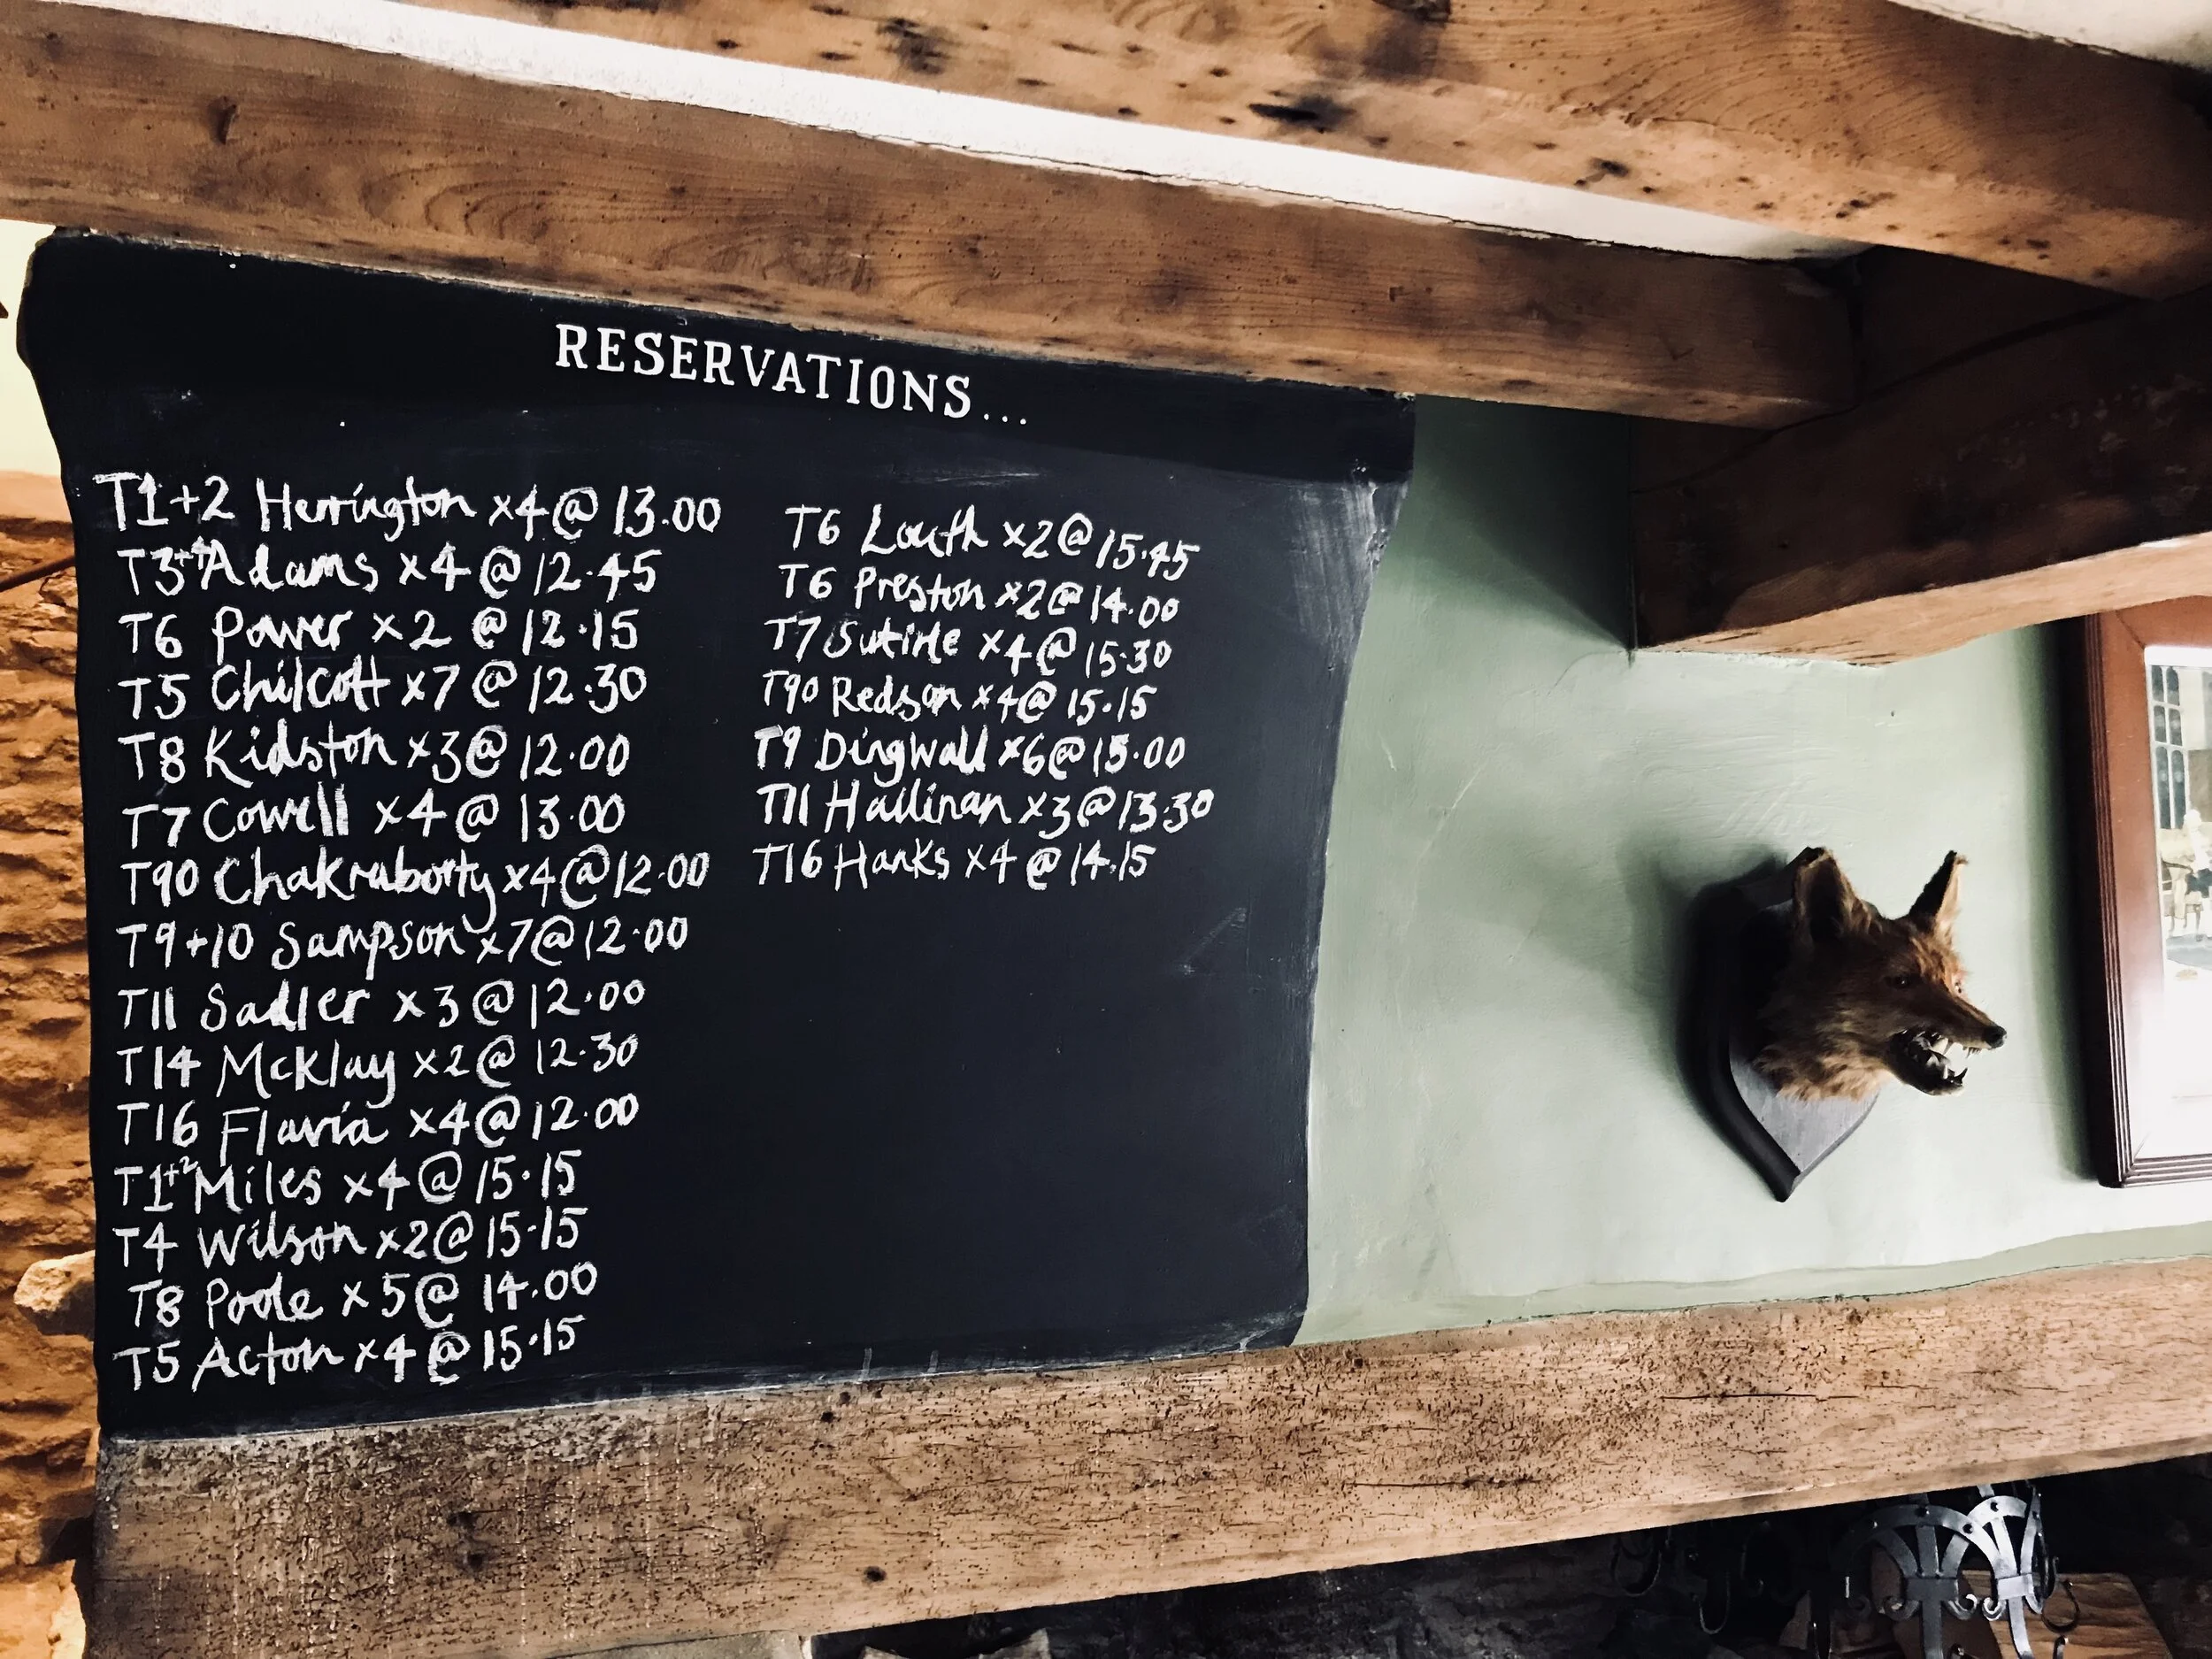 RESERVATIONS...
T1+2 Herrington x4@ 13.00
T3+4 Adams x4@12.45
T6 Power x2 @12.15
T5 Chilcott x7@12.30
T8 Kidston x3@12.00
T7 Cowell x4@ 13.00
T90 Chakraborty x4@12.00
T9+10 Sampson x7@12.00
T11 Sadler x3@12.00
T14 McKlay x2@ 12.30
T16 Flavia x4@12.00
T1+2 Miles x4@15.15
T4 Wilson x2@15.15
T8 Poole x5@ 14.00
T5 Acton x4@15.15
T6 Louth x2@15.45
T6 Preston x2@14.00
T7 x4@15.30
T90 Redson x4@15.15
T9 Dingwall x6@15.00
T11 Hallinan x3@13.30
T16 Hanks x4@14.15